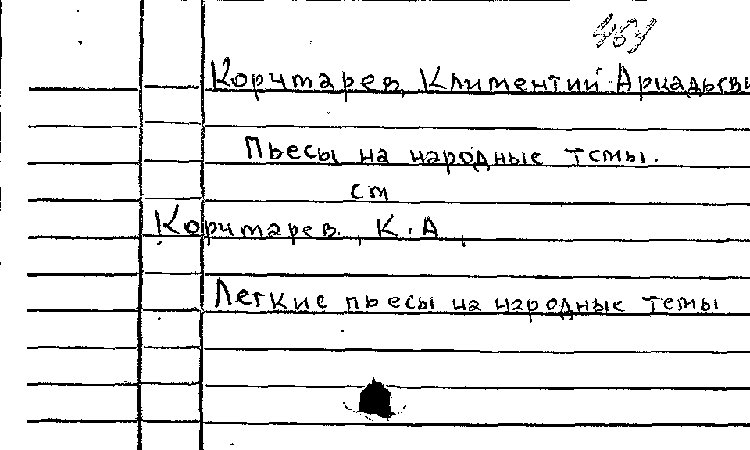 Корчмарев, Климентий Аркадьеви
Пьесы на народные темы.
см
Корчмарев, К. А.
Легкие пьесы на народные темы